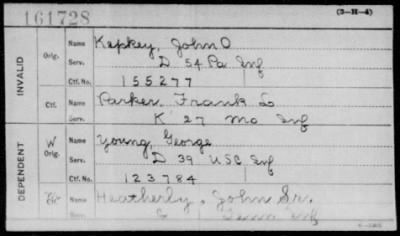 161728
(3-H-4)
INVALID
Orig.
Name Kepkey, John O
Serv. D 54 Pa Inf
Ctf. No. 155277
Ctf.
Name Parker, Frank L
Serv. K 27 Mo Inf
DEPENDENT
W Orig.
Name Young, George
Serv. D 39 USC Inf
Ctf. No. 123784
Name Heatherly, John Sr.
Serv. Inf